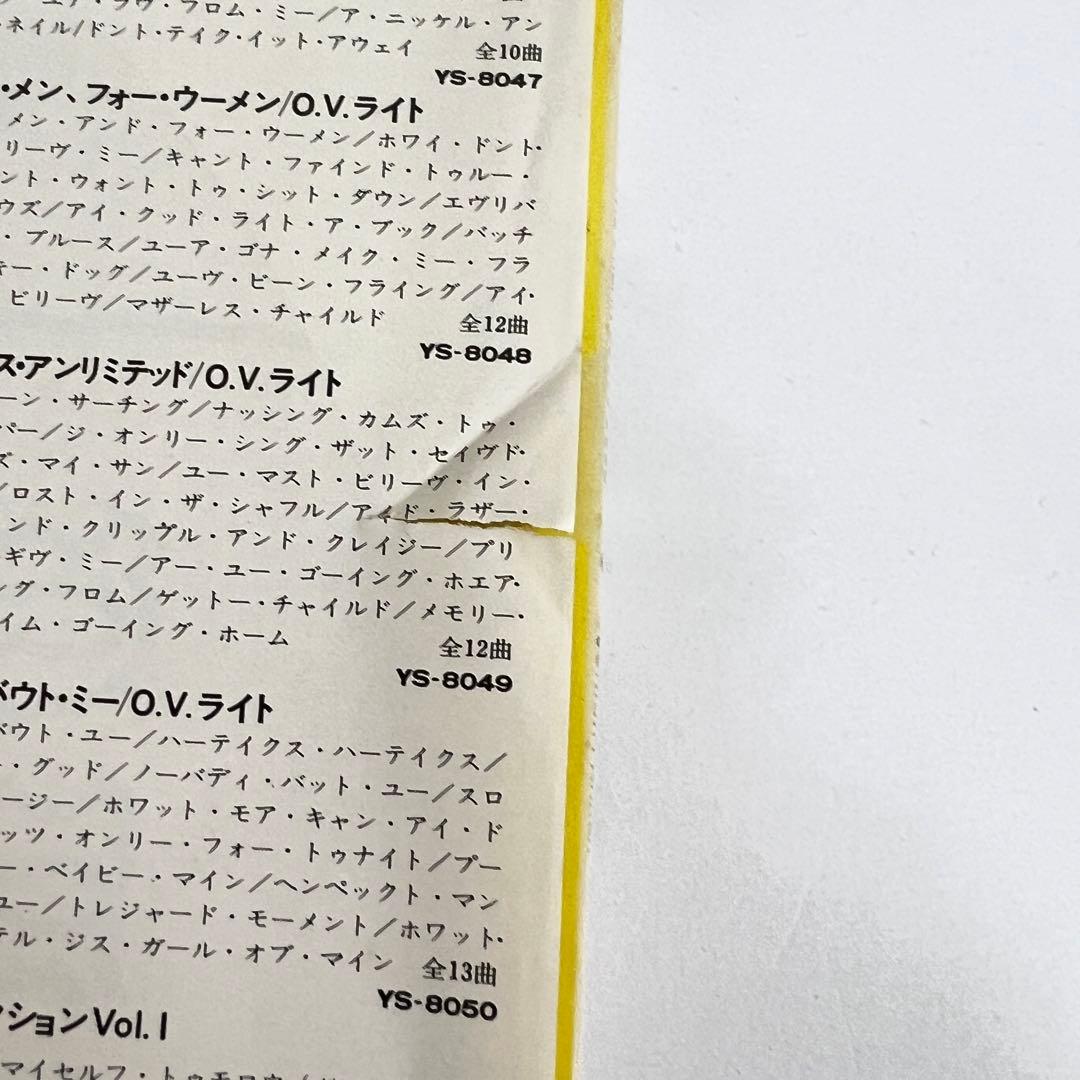 ユア・ラヴ・フロム・ミー/ア・ニッケル・アン
ネイル/ドント・テイク・イット・アウェイ 全10曲
YS-8047
・メン、フォー・ウーメン/O.V.ライト
メン・アンド・フォー・ウーメン/ホワイ・ドント・
リーヴ・ミー/キャント・ファインド・トゥルー・
ント・ウォント・トゥ・シット・ダウン/エヴリバ
ウズ/アイ・クッド・ライト・ア・ブック/バッチ
・ブルース/ユーア・ゴナ・メイク・ミー・フラ
キー・ドッグ/ユーヴ・ビーン・フライング/アイ・
ビリーヴ/マザーレス・チャイルド 全12曲
YS-8048
ス・アンリミテッド/O.V.ライト
ーン・サーチング/ナッシング・カムズ・トゥ・
パー/ジ・オンリー・シング・ザット・セイヴド・
ズ・マイ・サン/ユー・マスト・ビリーヴ・イン・
/ロスト・イン・ザ・シャフル/アイド・ラザー・
ンド・クリップル・アンド・クレイジー/プリ
ギヴ・ミー/アー・ユー・ゴーイング・ホエア・
ング・フロム/ゲットー・チャイルド/メモリー・
イム・ゴーイング・ホーム 全12曲
YS-8049
バウト・ミー/O.V.ライト
バウト・ユー/ハーテイクス・ハーテイクス/
・グッド/ノーバディ・バット・ユー/スロ
ージー/ホワット・モア・キャン・アイ・ド
ッツ・オンリー・フォー・トゥナイト/プー
ー・ベイビー・マイン/ヘンペックト・マン
ユー/トレジャード・モーメント/ホワット・
テル・ジス・ガール・オブ・マイン 全13曲
YS-8050
クションVol.1
マイセルフ・トゥモロウ/